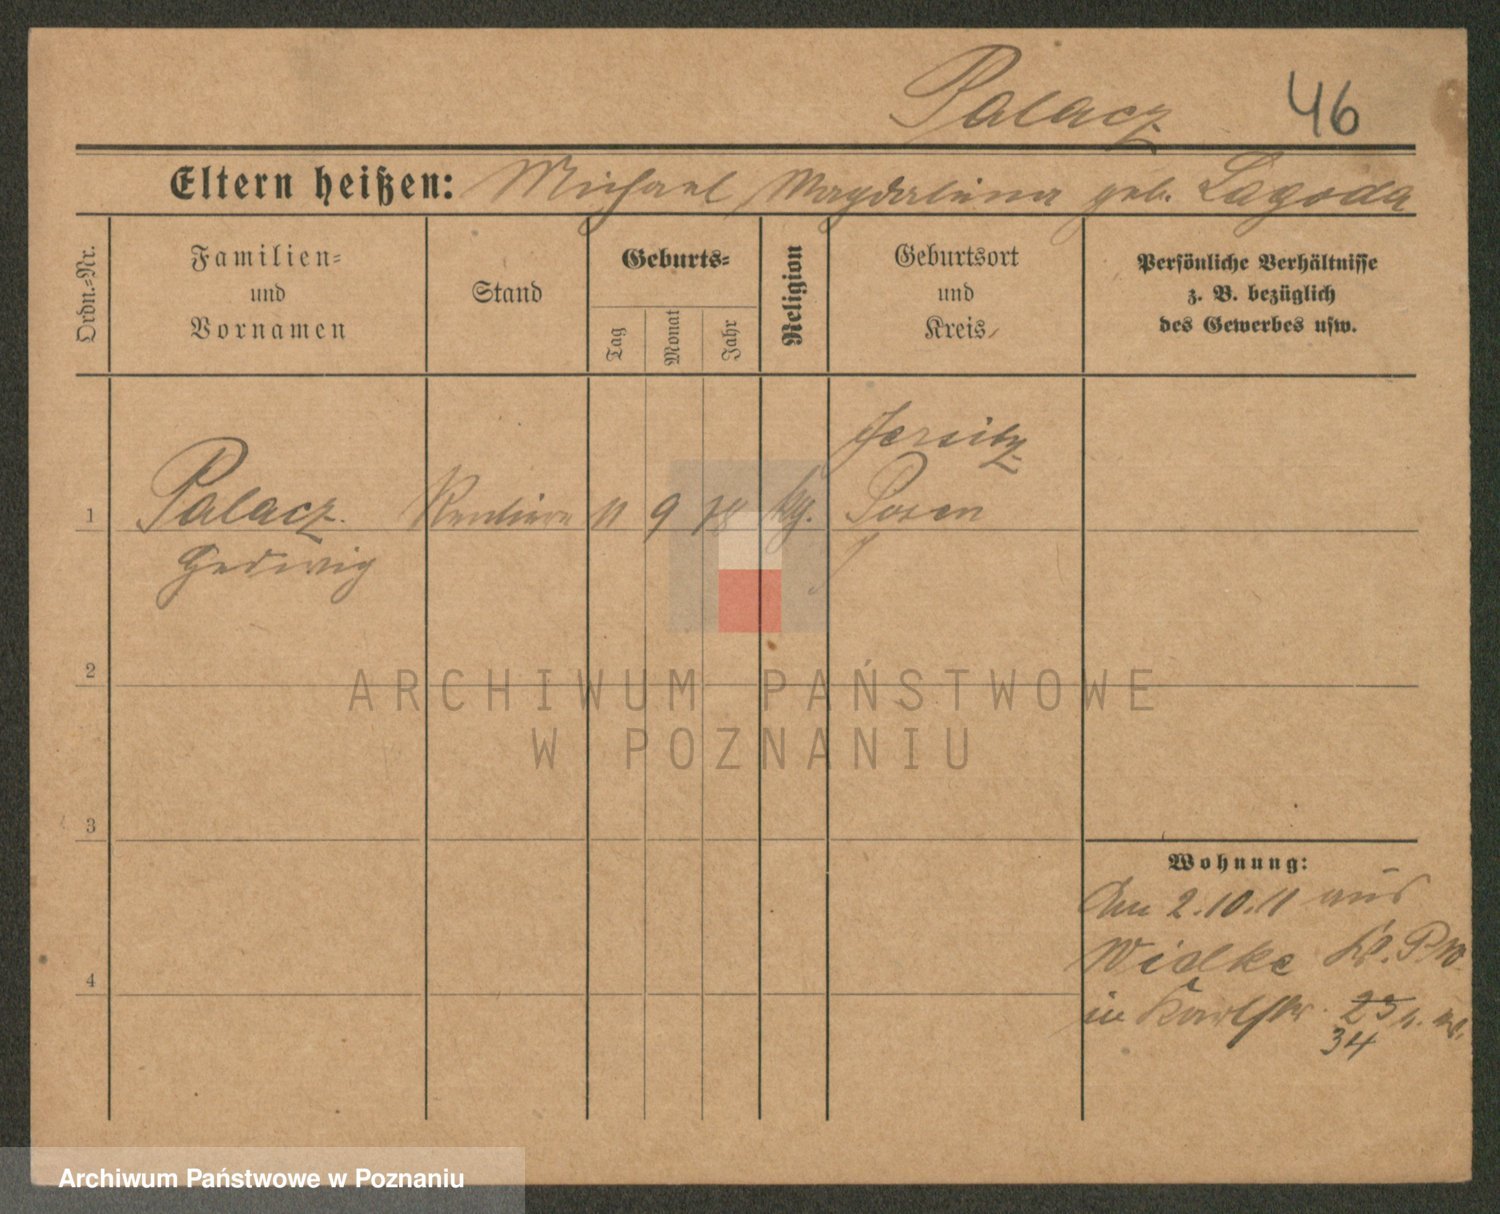 Palacz 46
Eltern heißen: Michael Magdalena geb. Lagoda
Ordn.-Nr.
Familien-
und
Vornamen
Stand
Geburts-
Tag
Monat
Jahr
Religion
Geburtsort
und
Kreis
Persönliche Verhältnisse
z. B. bezüglich
des Gewerbes usw.
Jersitz
1 Palacz Rentiere 11 9 78 kg. Posen
Hedwig
2
3
4
Wohnung:
Am 2.10.11 aus
Widke Kr. P.W.
in Karlstr. 25
34
ARCHIWUM PAŃSTWOWE
W POZNANIU
Archiwum Państwowe w Poznaniu